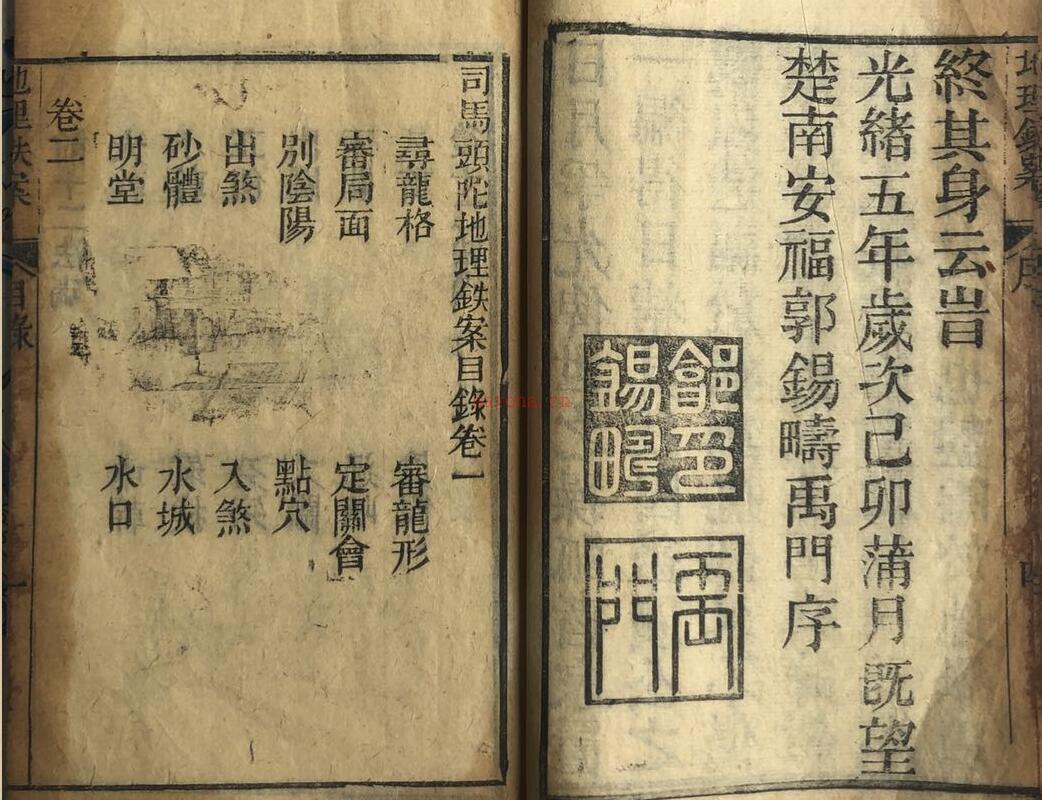 終其身云旹
光緒五年歲次己卯蒲月既望
楚南安福郭錫疇禹門序
司馬頭陀地理鉄案目錄卷一
尋龍格 審龍形
審局面 定關會
別陰陽 點穴
出煞 入煞
砂體 水城
明堂 水口
卷二
目錄